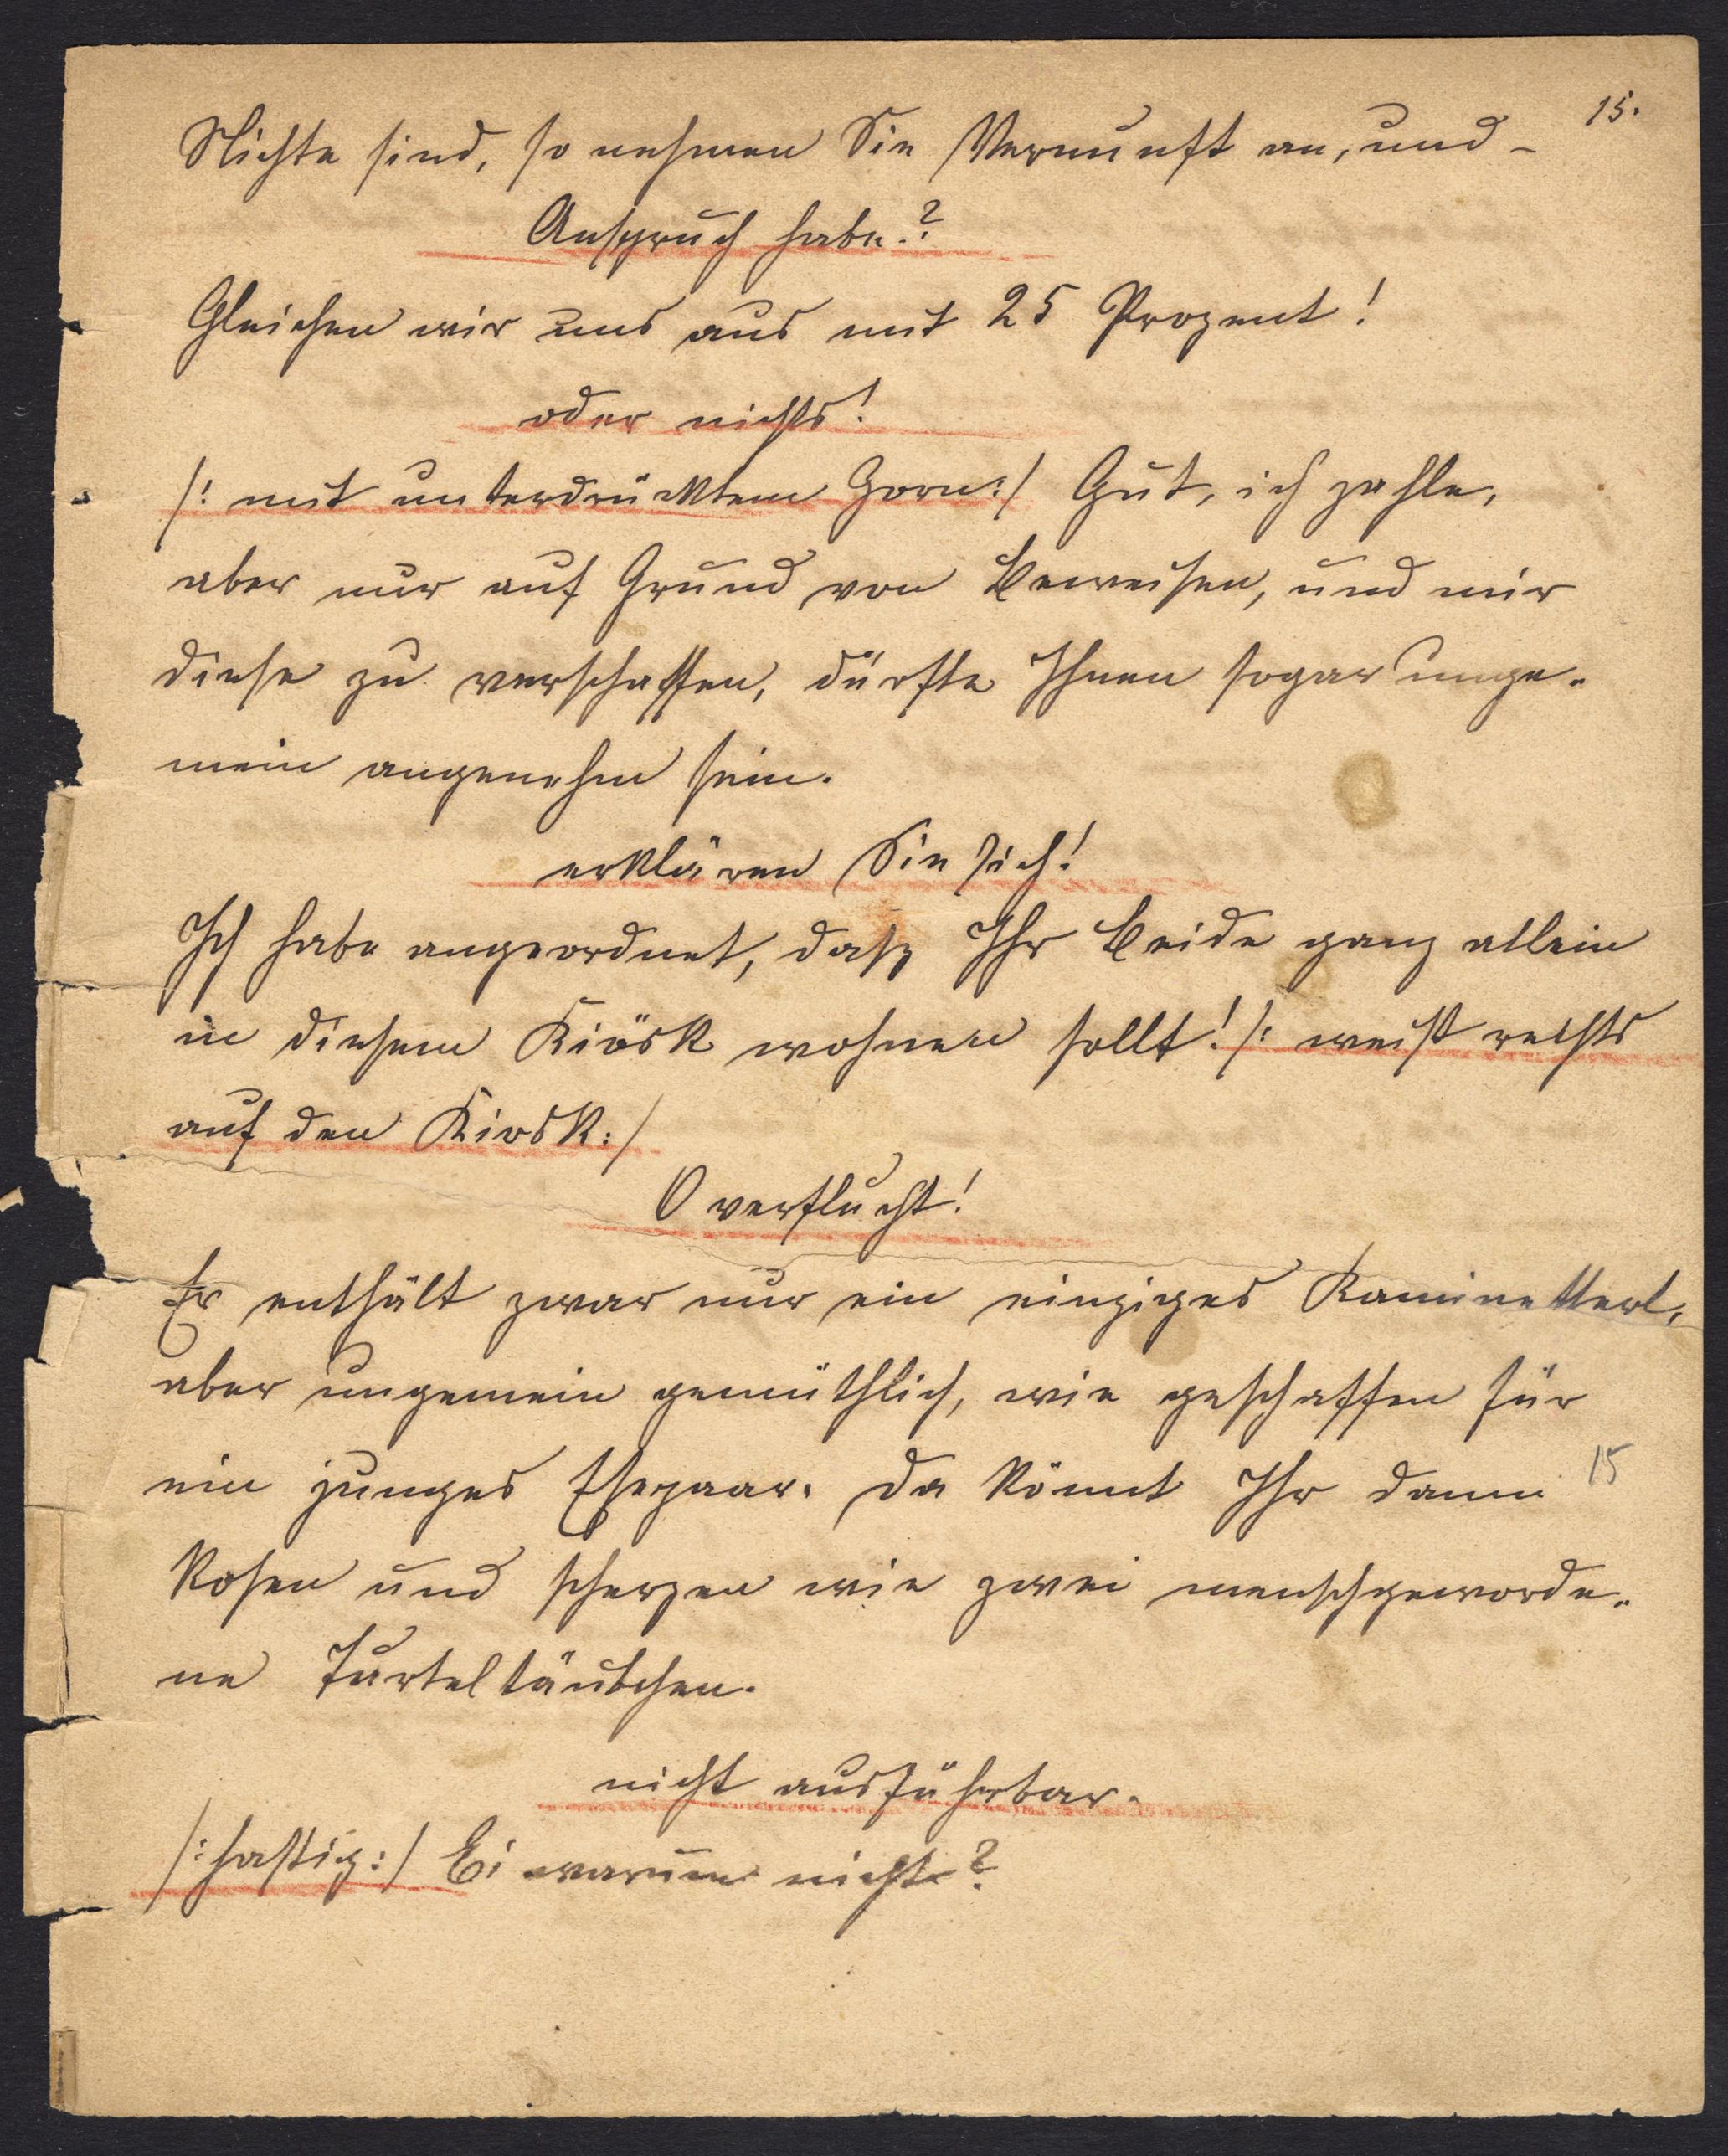 15.
Nichte sind, so nehmen Sie Vernunft an, und –
Anspruch habe.?
Gleichen wir uns aus mit 25 Prozent!
oder nichts!
/: mit unterdrücktem Zorn:/ Gut, ich zahle,
aber nur auf Grund von Beweisen, und mir
diese zu verschaffen, dürfte Ihnen sogar unge-
mein angenehm sein.
erklären Sie sich!
Ich habe angeordnet, daß Ihr Beide ganz allein
in diesem Kiosk wohnen sollt! /: weist rechts
auf den Kiosk:/
O verflucht!
Er enthält zwar nur ein einziges Kaminetterl,
aber ungemein gemüthlich, wie geschaffen für
ein junges Ehepaar. Da könnt Ihr dann
15
kosen und scherzen wie zwei menschgeworde-
ne Turteltäubchen.
nicht ausführbar.
/: hastig:/ Ei warum nicht?